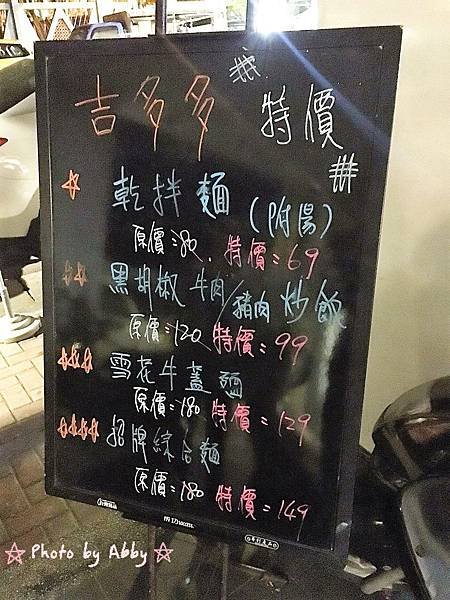 吉多多 特價
乾拌麵(附湯)
原價:80. 特價:69
黑胡椒牛肉/豬肉炒飯
原價:120 特價:99
雪花牛蓋麵
原價:180 特價:129
招牌綜合麵
原價:180 特價:149
Photo by Abby